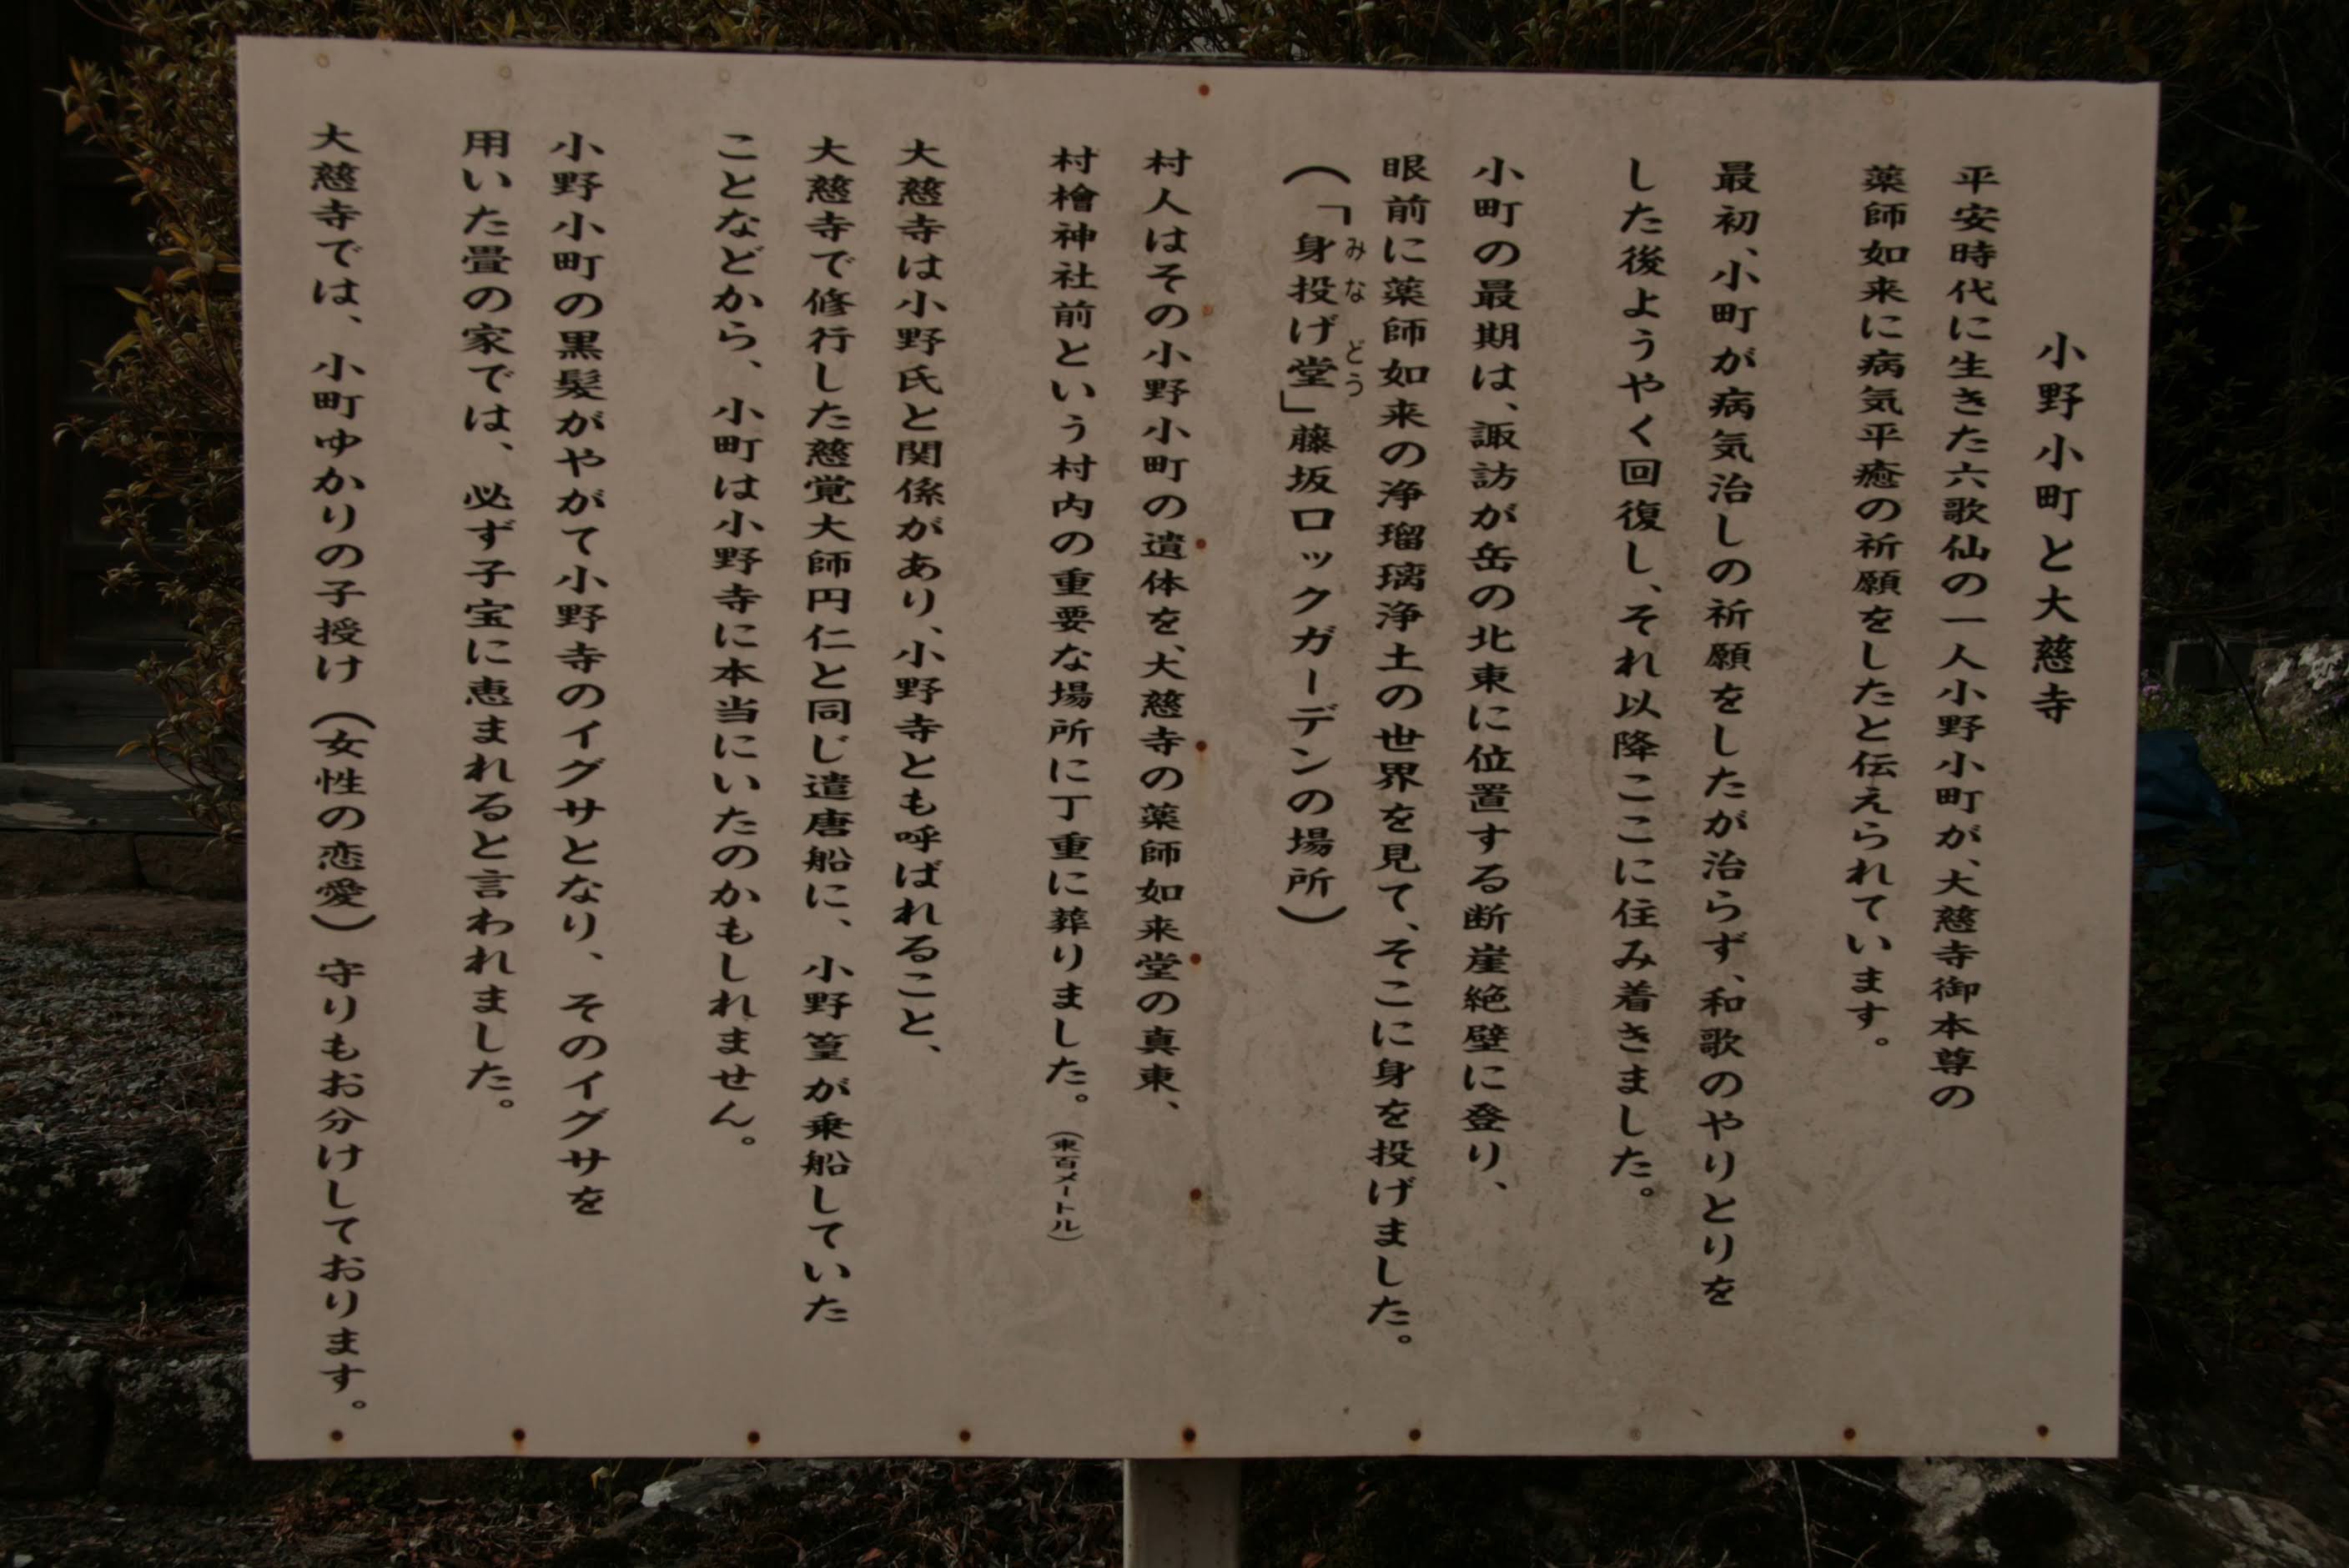 小野小町と大慈寺
平安時代に生きた六歌仙の一人小野小町が、大慈寺御本尊の
薬師如来に病気平癒の祈願をしたと伝えられています。
最初、小町が病気治しの祈願をしたが治らず、和歌のやりとりを
した後ようやく回復し、それ以降ここに住み着きました。
小町の最期は、諏訪が岳の北東に位置する断崖絶壁に登り、
眼前に薬師如来の浄瑠璃浄土の世界を見て、そこに身を投げました。
みな どう
(「身投げ堂」藤坂ロックガーデンの場所)
村人はその小野小町の遺体を、大慈寺の薬師如来堂の真東、
村檜神社前という村内の重要な場所に丁重に葬りました。(東百メートル)
大慈寺は小野氏と関係があり、小野寺とも呼ばれること、
大慈寺で修行した慈覚大師円仁と同じ遣唐船に、小野篁が乗船していた
ことなどから、小町は小野寺に本当にいたのかもしれません。
小野小町の黒髪がやがて小野寺のイグサとなり、そのイグサを
用いた畳の家では、必ず子宝に恵まれると言われました。
大慈寺では、小町ゆかりの子授け(女性の恋愛)守りもお分けしております。